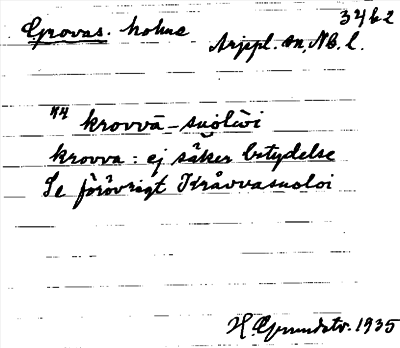 3462
Grovas. holme
Arjepl. sn, NB. l.
44 krovvā-suŏlui
krovva: ej säker betydelse
Se förövrigt Kråvvasuoloi
H. Grundstr. 1935